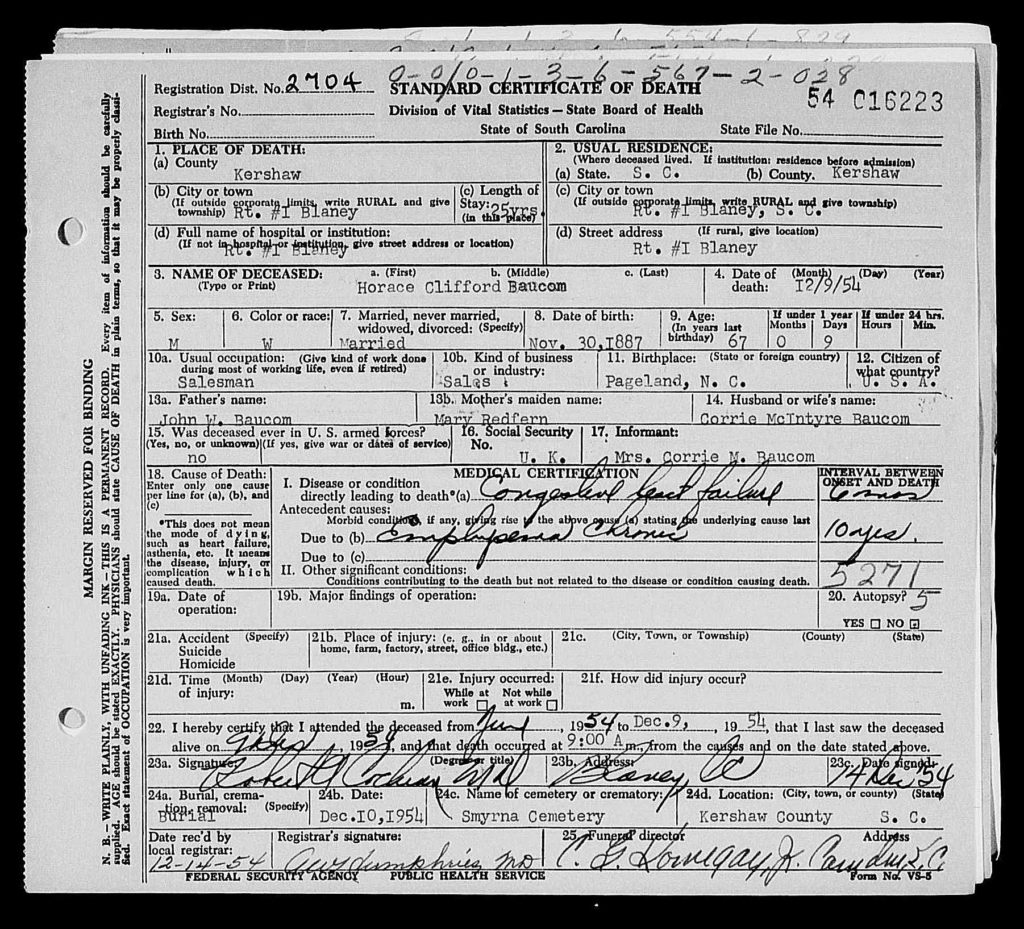 0-010-1-3-6-567-2-028
Registration Dist. No. 2704 STANDARD CERTIFICATE OF DEATH 54 016223
Registrar's No. Division of Vital Statistics — State Board of Health
Birth No. State of South Carolina State File No.
1. PLACE OF DEATH:
(a) County
Kershaw
2. USUAL RESIDENCE:
(Where deceased lived. If institution: residence before admission)
(a) State. S. C. (b) County. Kershaw
(b) City or town
(If outside corporate limits, write RURAL and give
township) Rt. #I Blaney
(c) Length of
Stay: 25yrs.
(in this place)
(c) City or town
(If outside corporate limits, write RURAL and give township)
Rt. #I Blaney, S. C.
(d) Full name of hospital or institution:
(If not in hospital or institution, give street address or location)
Rt. #I Blaney
(d) Street address (If rural, give location)
Rt. #I Blaney
3. NAME OF DECEASED: a. (First) b. (Middle) c. (Last)
(Type or Print) Horace Clifford Baucom
4. Date of (Month) (Day) (Year)
death: I2/9/54
5. Sex:
M
6. Color or race:
W
7. Married, never married,
widowed, divorced: (Specify)
Married
8. Date of birth:
Nov. 30,I887
9. Age:
(In years last
birthday) 67
If under 1 year
Months Days
0 9
If under 24 hrs.
Hours Min.
10a. Usual occupation: (Give kind of work done
during most of working life, even if retired)
Salesman
10b. Kind of business
or industry:
Sales
11. Birthplace: (State or foreign country)
Pageland, N. C.
12. Citizen of
what country?
U. S. A.
13a. Father's name:
John W. Baucom
13b. Mother's maiden name:
Mary Redfern
14. Husband or wife's name:
Corrie McIntyre Baucom
15. Was deceased ever in U. S. armed forces?
(Yes, no, or unknown) (If yes, give war or dates of service)
no
16. Social Security
No. U. K.
17. Informant:
Mrs. Corrie M. Baucom
18. Cause of Death:
Enter only one cause
per line for (a), (b), and
(c)
*This does not mean
the mode of dying,
such as heart failure,
asthenia, etc. It means
the disease, injury, or
complication which
caused death.
MEDICAL CERTIFICATION
I. Disease or condition
directly leading to death*(a) Congestive heart failure
Antecedent causes:
Morbid conditions, if any, giving rise to the above cause (a) stating the underlying cause last
Due to (b) Emphysema Chronic
Due to (c)
II. Other significant conditions:
Conditions contributing to the death but not related to the disease or condition causing death.
INTERVAL BETWEEN
ONSET AND DEATH
6 mos
10 yrs.
5271
19a. Date of
operation:
19b. Major findings of operation:
20. Autopsy? 5
YES NO
21a. Accident (Specify)
Suicide
Homicide
21b. Place of injury: (e. g., in or about
home, farm, factory, street, office bldg., etc.)
21c. (City, Town, or Township) (County) (State)
21d. Time (Month) (Day) (Year) (Hour)
of injury: m.
21e. Injury occurred:
While at Not while
work at work
21f. How did injury occur?
22. I hereby certify that I attended the deceased from June, 1954 to Dec.9, 1954, that I last saw the deceased
alive on 1954, and that death occurred at 9:00 A m., from the causes and on the date stated above.
23a. Signature: (Degree or title) 23b. Address 23c. Date signed
Robert Cochran MD Blaney, SC 14 Dec '54
24a. Burial, crema-
tion, removal: (Specify)
Burial
24b. Date:
Dec.IO,I954
24c. Name of cemetery or crematory:
Smyrna Cemetery
24d. Location: (City, town, or county) (State)
Kershaw County S. C.
Date rec'd by
local registrar:
12-14-54
Registrar's signature:
Humphries MD
25. Funeral director Address
Jr. Camden S.C.
FEDERAL SECURITY AGENCY PUBLIC HEALTH SERVICE Form No. VS-5
MARGIN RESERVED FOR BINDING
N. B.—WRITE PLAINLY, WITH UNFADING INK—THIS IS A PERMANENT RECORD. Every item of information should be carefully
supplied. AGE should be stated EXACTLY. PHYSICIANS should state CAUSE OF DEATH in plain terms, so that it may be properly classi-
fied. Exact statement of OCCUPATION is very important.